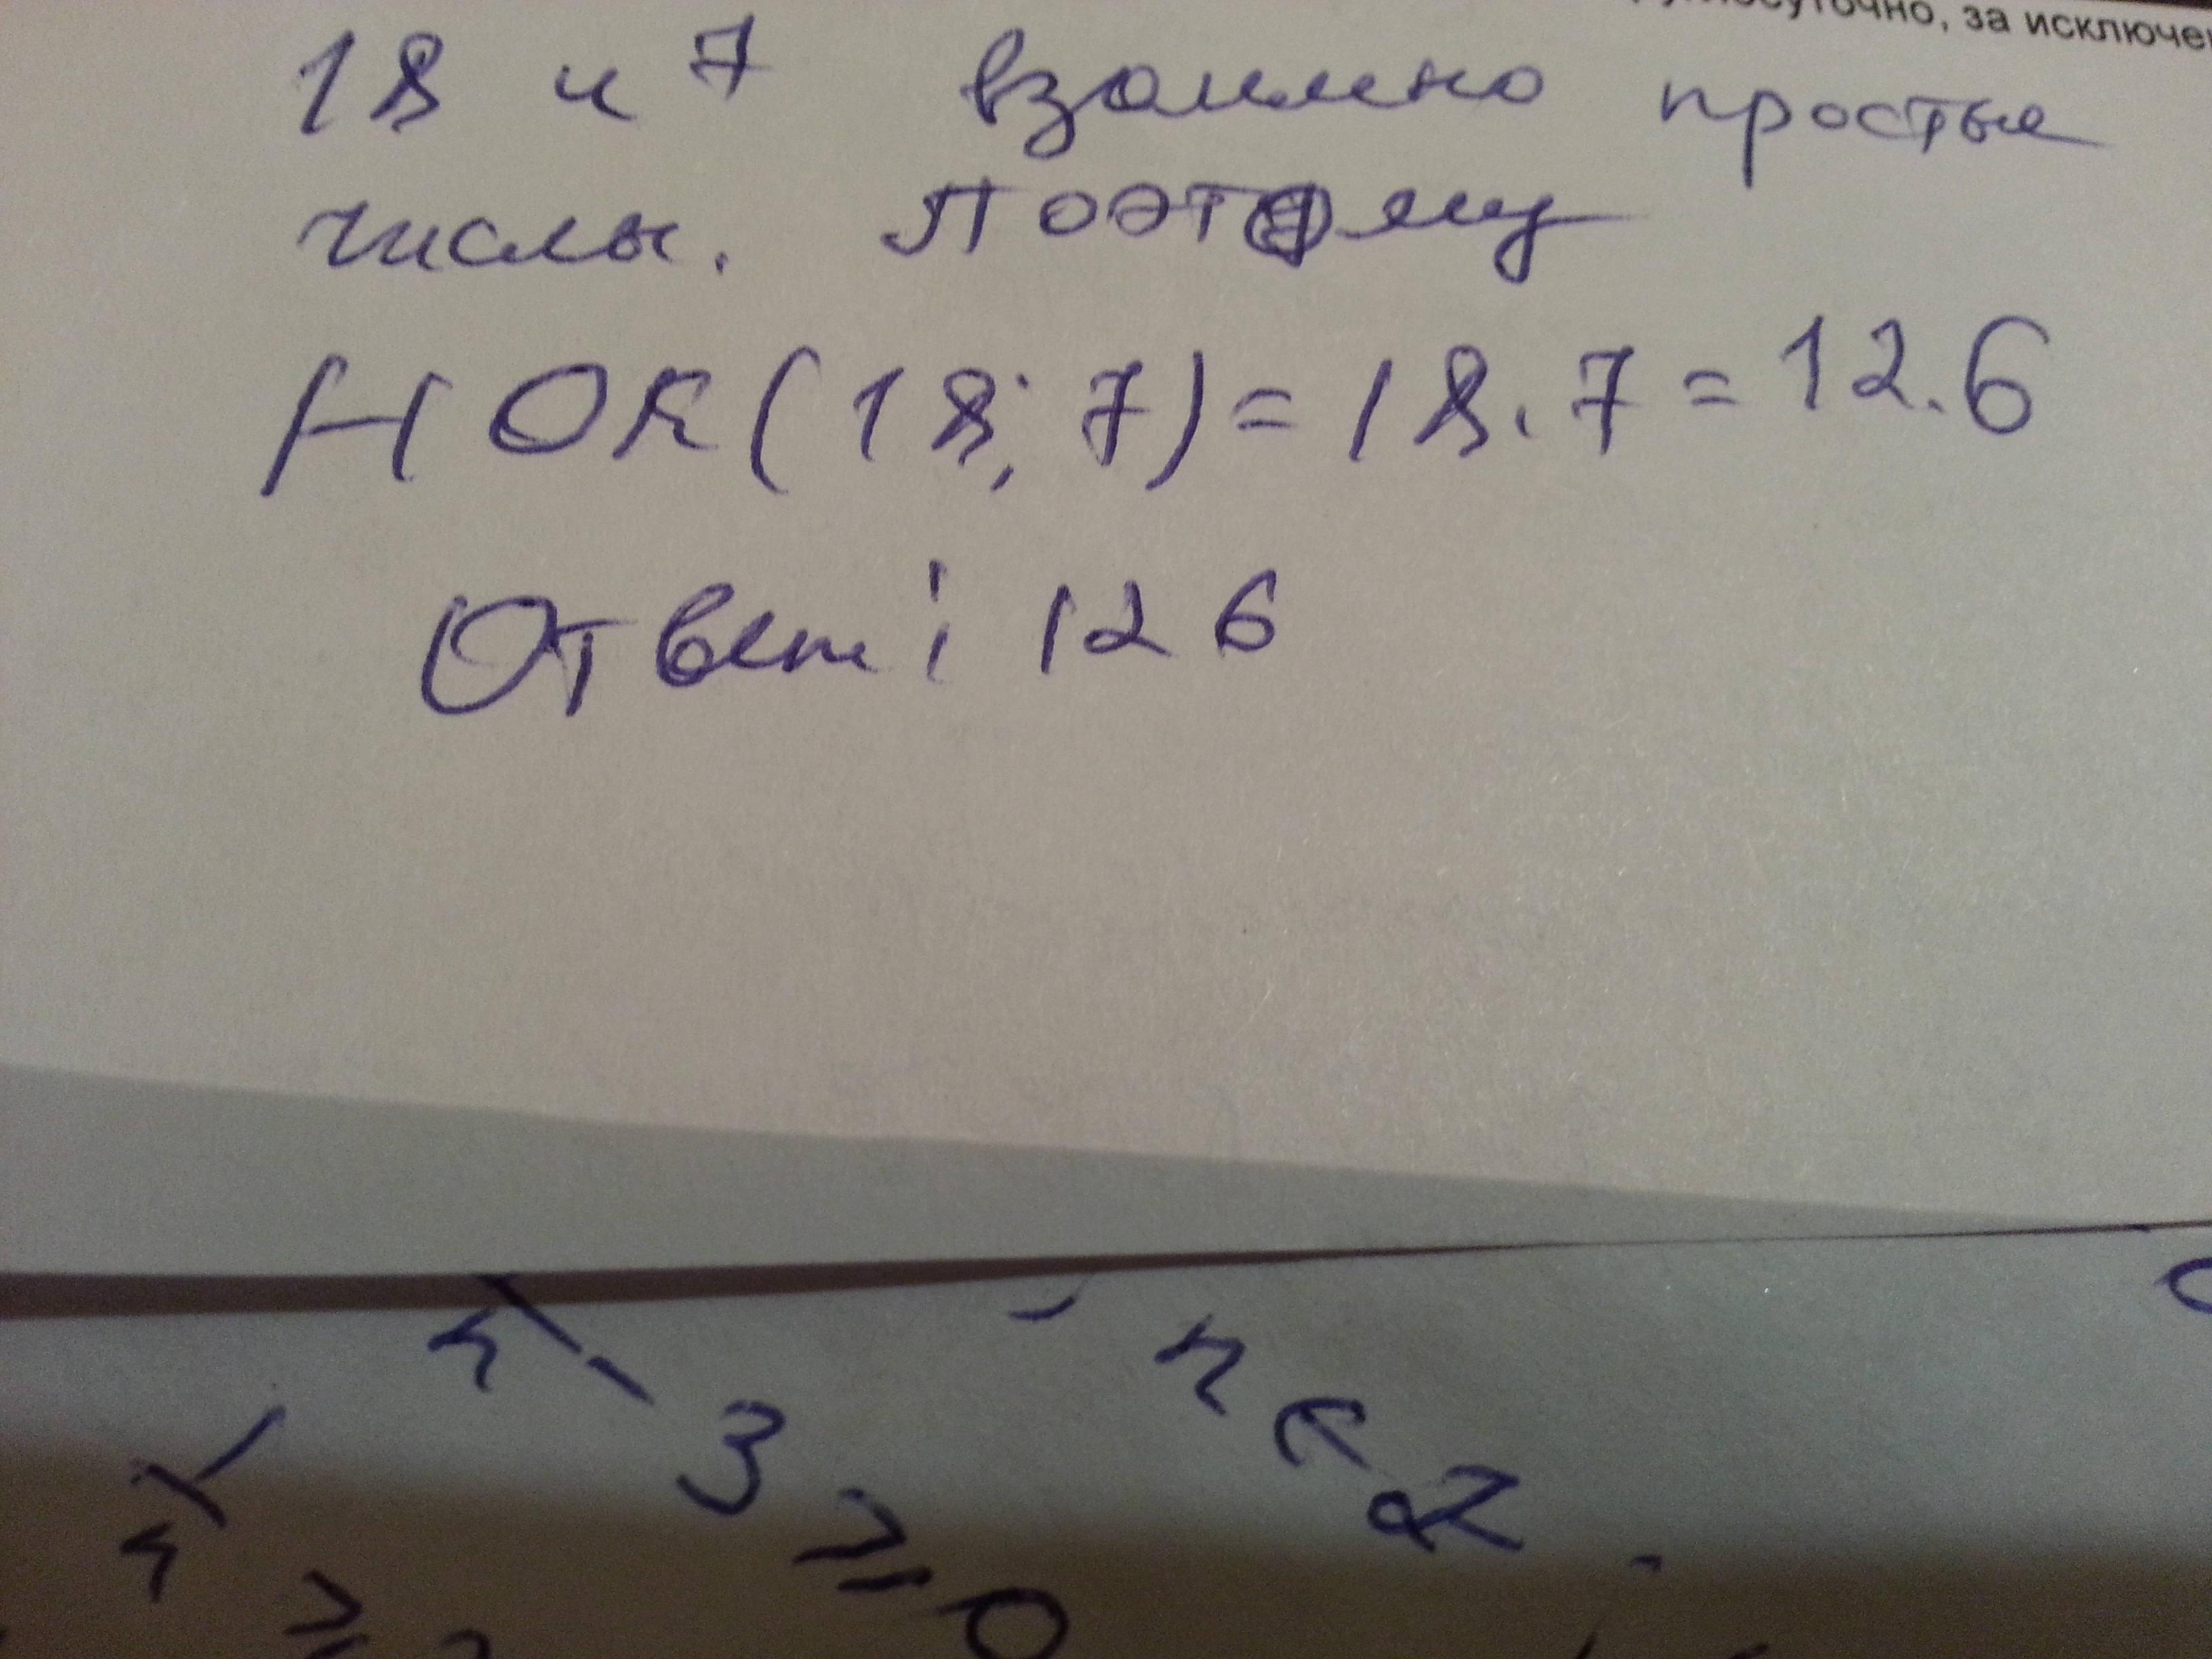 за исключе
18 и 7 взаимно простые
числы. Поэтому
НОК(18; 7) = 18 · 7 = 12.6
Ответ: 126
3 ⩾ 0